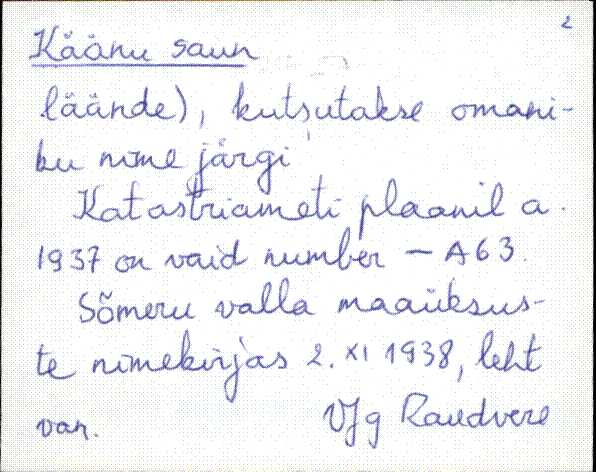 2
Käänu saun
läände), kutsutakse omani-
ku nime järgi
Katastriameti plaanil a.
1937 on vaid number – A63.
Sõmeru valla maaüksus-
te nimekirjas 2. XI 1938, leht
van. VJg Raudvere